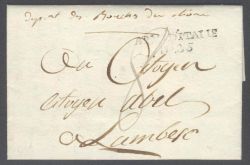 depart des Bouches du rhone
ARM. D'ITALIE
au Citoyen
citoyen abel
a Lambesc